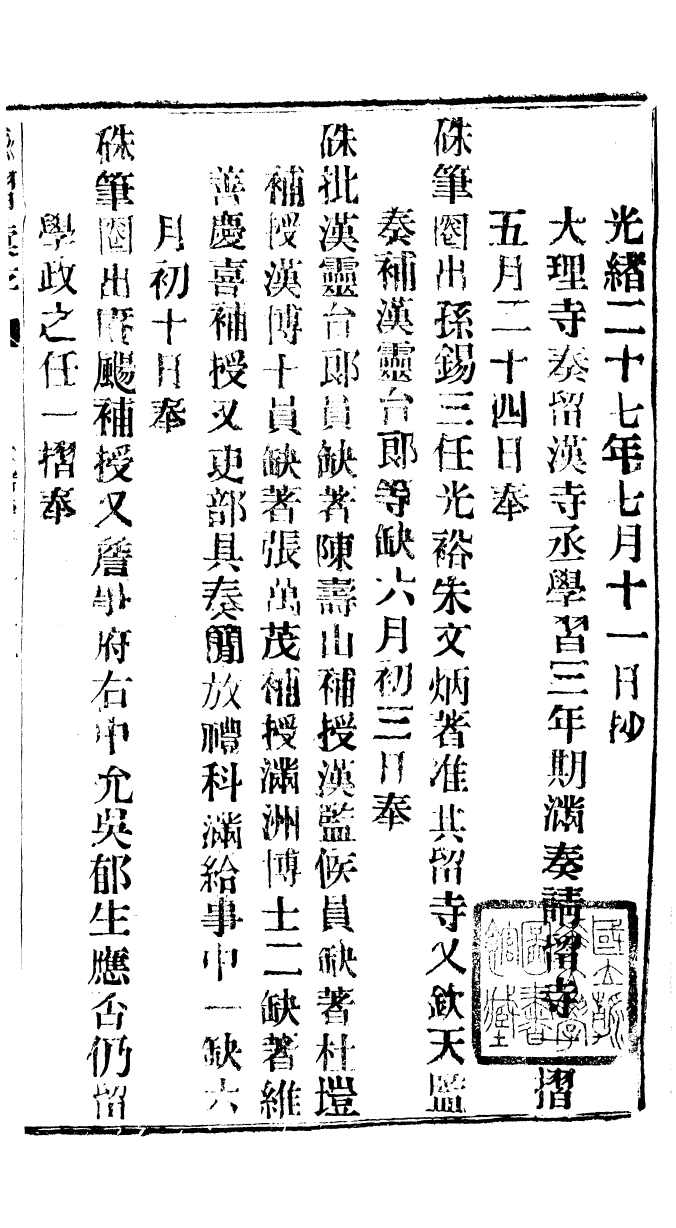 光緒二十七年七月十一日抄
大理寺奏留漢寺丞學習三年期滿奏請留寺一摺
五月二十四日奉
硃筆圈出孫錫三任光裕朱文炳著准其留寺又欽天監
奏補漢靈台郎等缺六月初三日奉
硃批漢靈台郎員缺著陳壽山補授漢監候員缺著杜塏
補授漢博士員缺著張萬茂補授滿洲博士二缺著維
善慶喜補授又吏部具奏簡放禮科滿給事中一缺六
月初十日奉
硃筆圈出慶颺補授又詹事府右中允吳郁生應否仍留
學政之任一摺奉